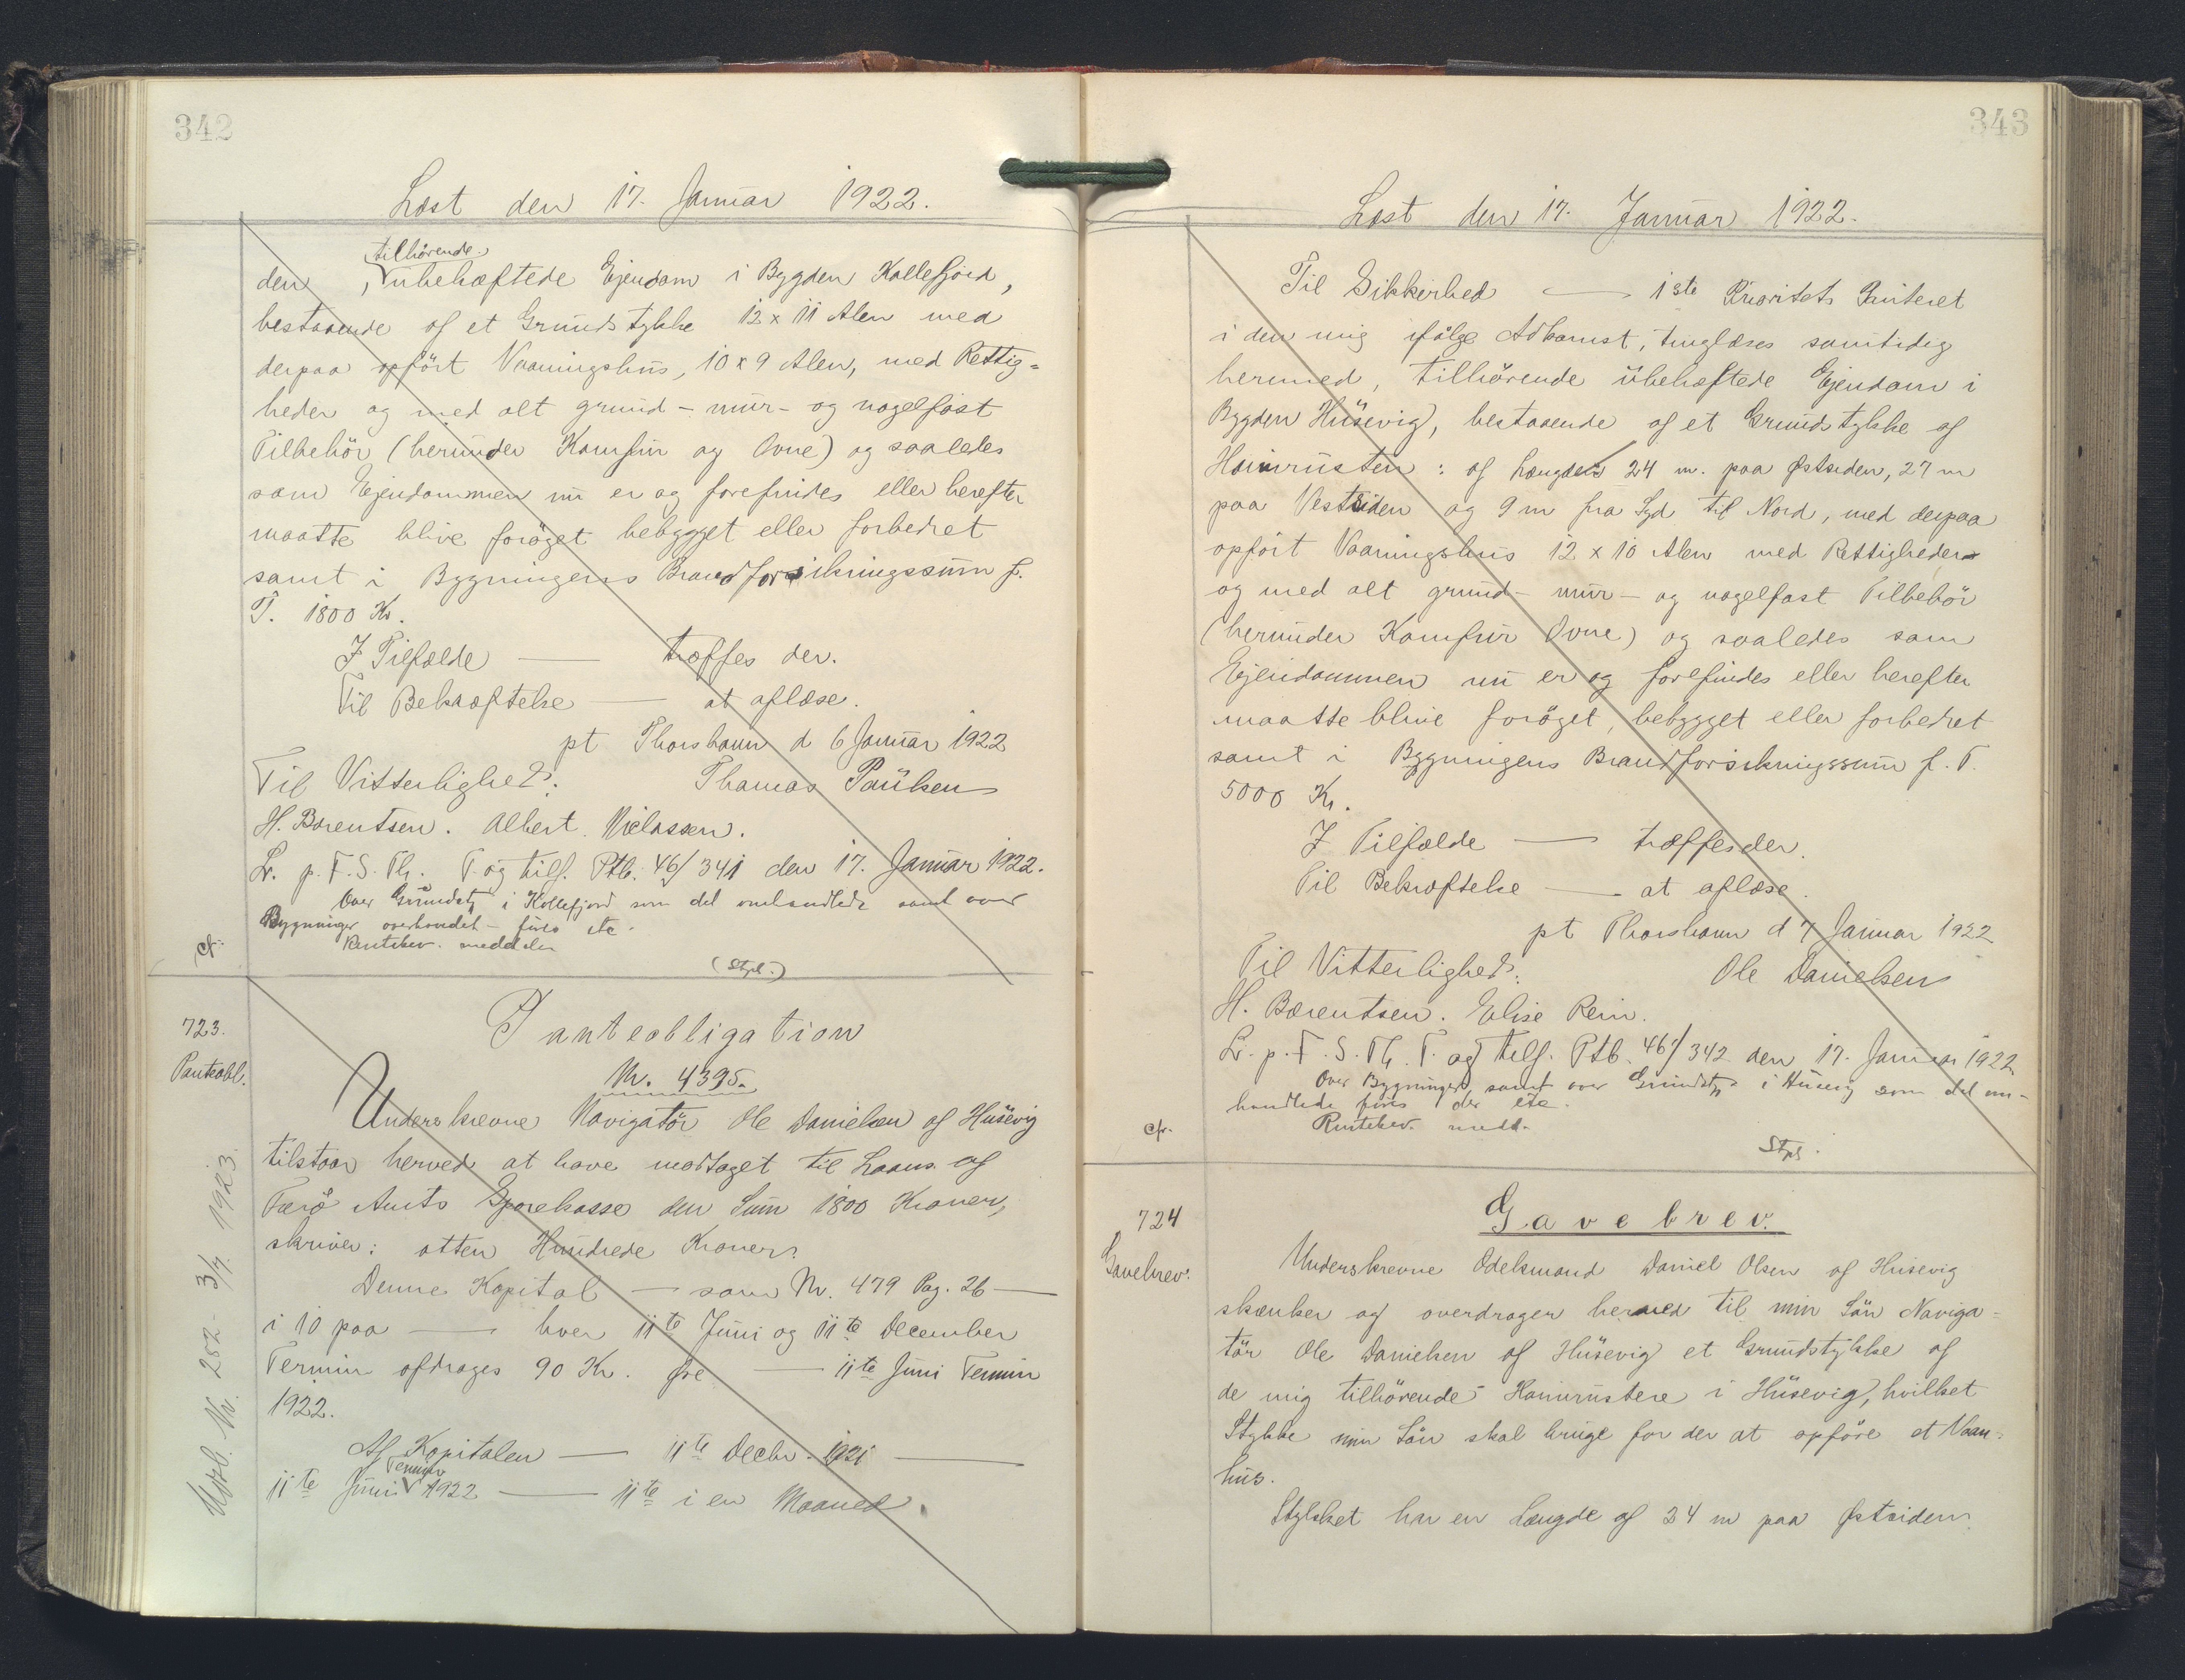 342
Læst den 17. Januar 1922.
tilhørende
den, ubehæftede Ejendom i Bygden Kollefjord,
bestaaende af et Grundstykke 12 x 11 Alen med
derpaa opført Vaaningshus, 10 x 9 Alen, med Rettig=
heder og med alt grund- mur- og nagelfast
Tilbehör (herunder Komfur og Ovne) og saaledes
som Ejendommen nu er og forefindes eller herefter
maatte blive foröget bebygget eller forbedret
samt i Bygningens Brandforsikringssum f.
T. 1800 Kr.
I Tilfælde — træffes der.
Til Bekræftelse — at aflæse.
pt Thorshavn d 6 Januar 1922
Til Vitterlighed: Thomas Paulsen
H. Bærentsen. Albert Niclassen.
Lr. p. F. S. Th. T. og tilf. Ptb. 46/341 den 17. Januar 1922.
Over Grundst. i Kollefjord som det omhandlede samt over
Bygninger overhovedet - etc.
cfr. Rentebev. meddeles
(Stpl.)
723. Panteobligation
Panteobl.
Nr. 4395.
Underskrevne Navigatör Ole Danielsen af Husevig
tilstaar herved at have modtaget til Laans af
Færö Amts Sparekasse den Sum 1800 Kroner,
skriver: atten Hundrede Kroner.
Denne Kapital — som Nr. 479 Pag. 26 —
i 10 paa — hver 11te Juni og 11te December
Termin afdrages 90 Kr. Øre — 11te Juni Termin
1922.
Af Kapitalen — 11te Decbr. 1921 —
Termin
11te Juni 1922 — 11te i en Maaned.
Nr. 252 - 3/7. 1923.
343
Læst den 17. Januar 1922.
Til Sikkerhed — 1ste Prioritets Panteret
i den mig ifölge Adkomst, tinglæses samtidig
hermed, tilhörende ubehæftede Ejendom i
Bygden Husevig, bestaaende af et Grundstykke af
Heimrusten: af Længden 24 m. paa Østsiden, 27 m
paa Vestsiden og 9 m fra Syd til Nord, med derpaa
opfört Vaaningshus 12 x 10 Alen med Rettigheder
og med alt grund- mur- og nagelfast Tilbehör
(herunder Komfur Ovne) og saaledes som
Ejendommen nu er og forefindes eller herefter
maatte blive foröget, bebygget eller forbedret
samt i Bygningens Brandforsikringssum f. T.
5000 Kr.
I Tilfælde — træffes der.
Til Bekræftelse — at aflæse.
pt Thorshavn d 7 Januar 1922
Til Vitterlighed: Ole Danielsen
H. Bærentsen. Elise Rein.
Lr. p. F. S. Th. T. og tilf. Ptb. 46/342 den 17. Januar 1922
Over Bygninger samt over Grundst. i Husevig som det om-
handlede der etc.
cfr. Rentebev. medd.
Stpl.
724 Gavebrev.
Gavebrev.
Underskrevne Odelsmand Daniel Olsen af Husevig
skænker og overdrager herved til min Sön Naviga=
tör Ole Danielsen af Husevig et Grundstykke af
de mig tilhörende Heimrustere i Husevig, hvilket
Stykke min Sön skal bruge for der at opföre et Vaan-
hus.
Stykket har en Længde af 24 m paa Østsiden